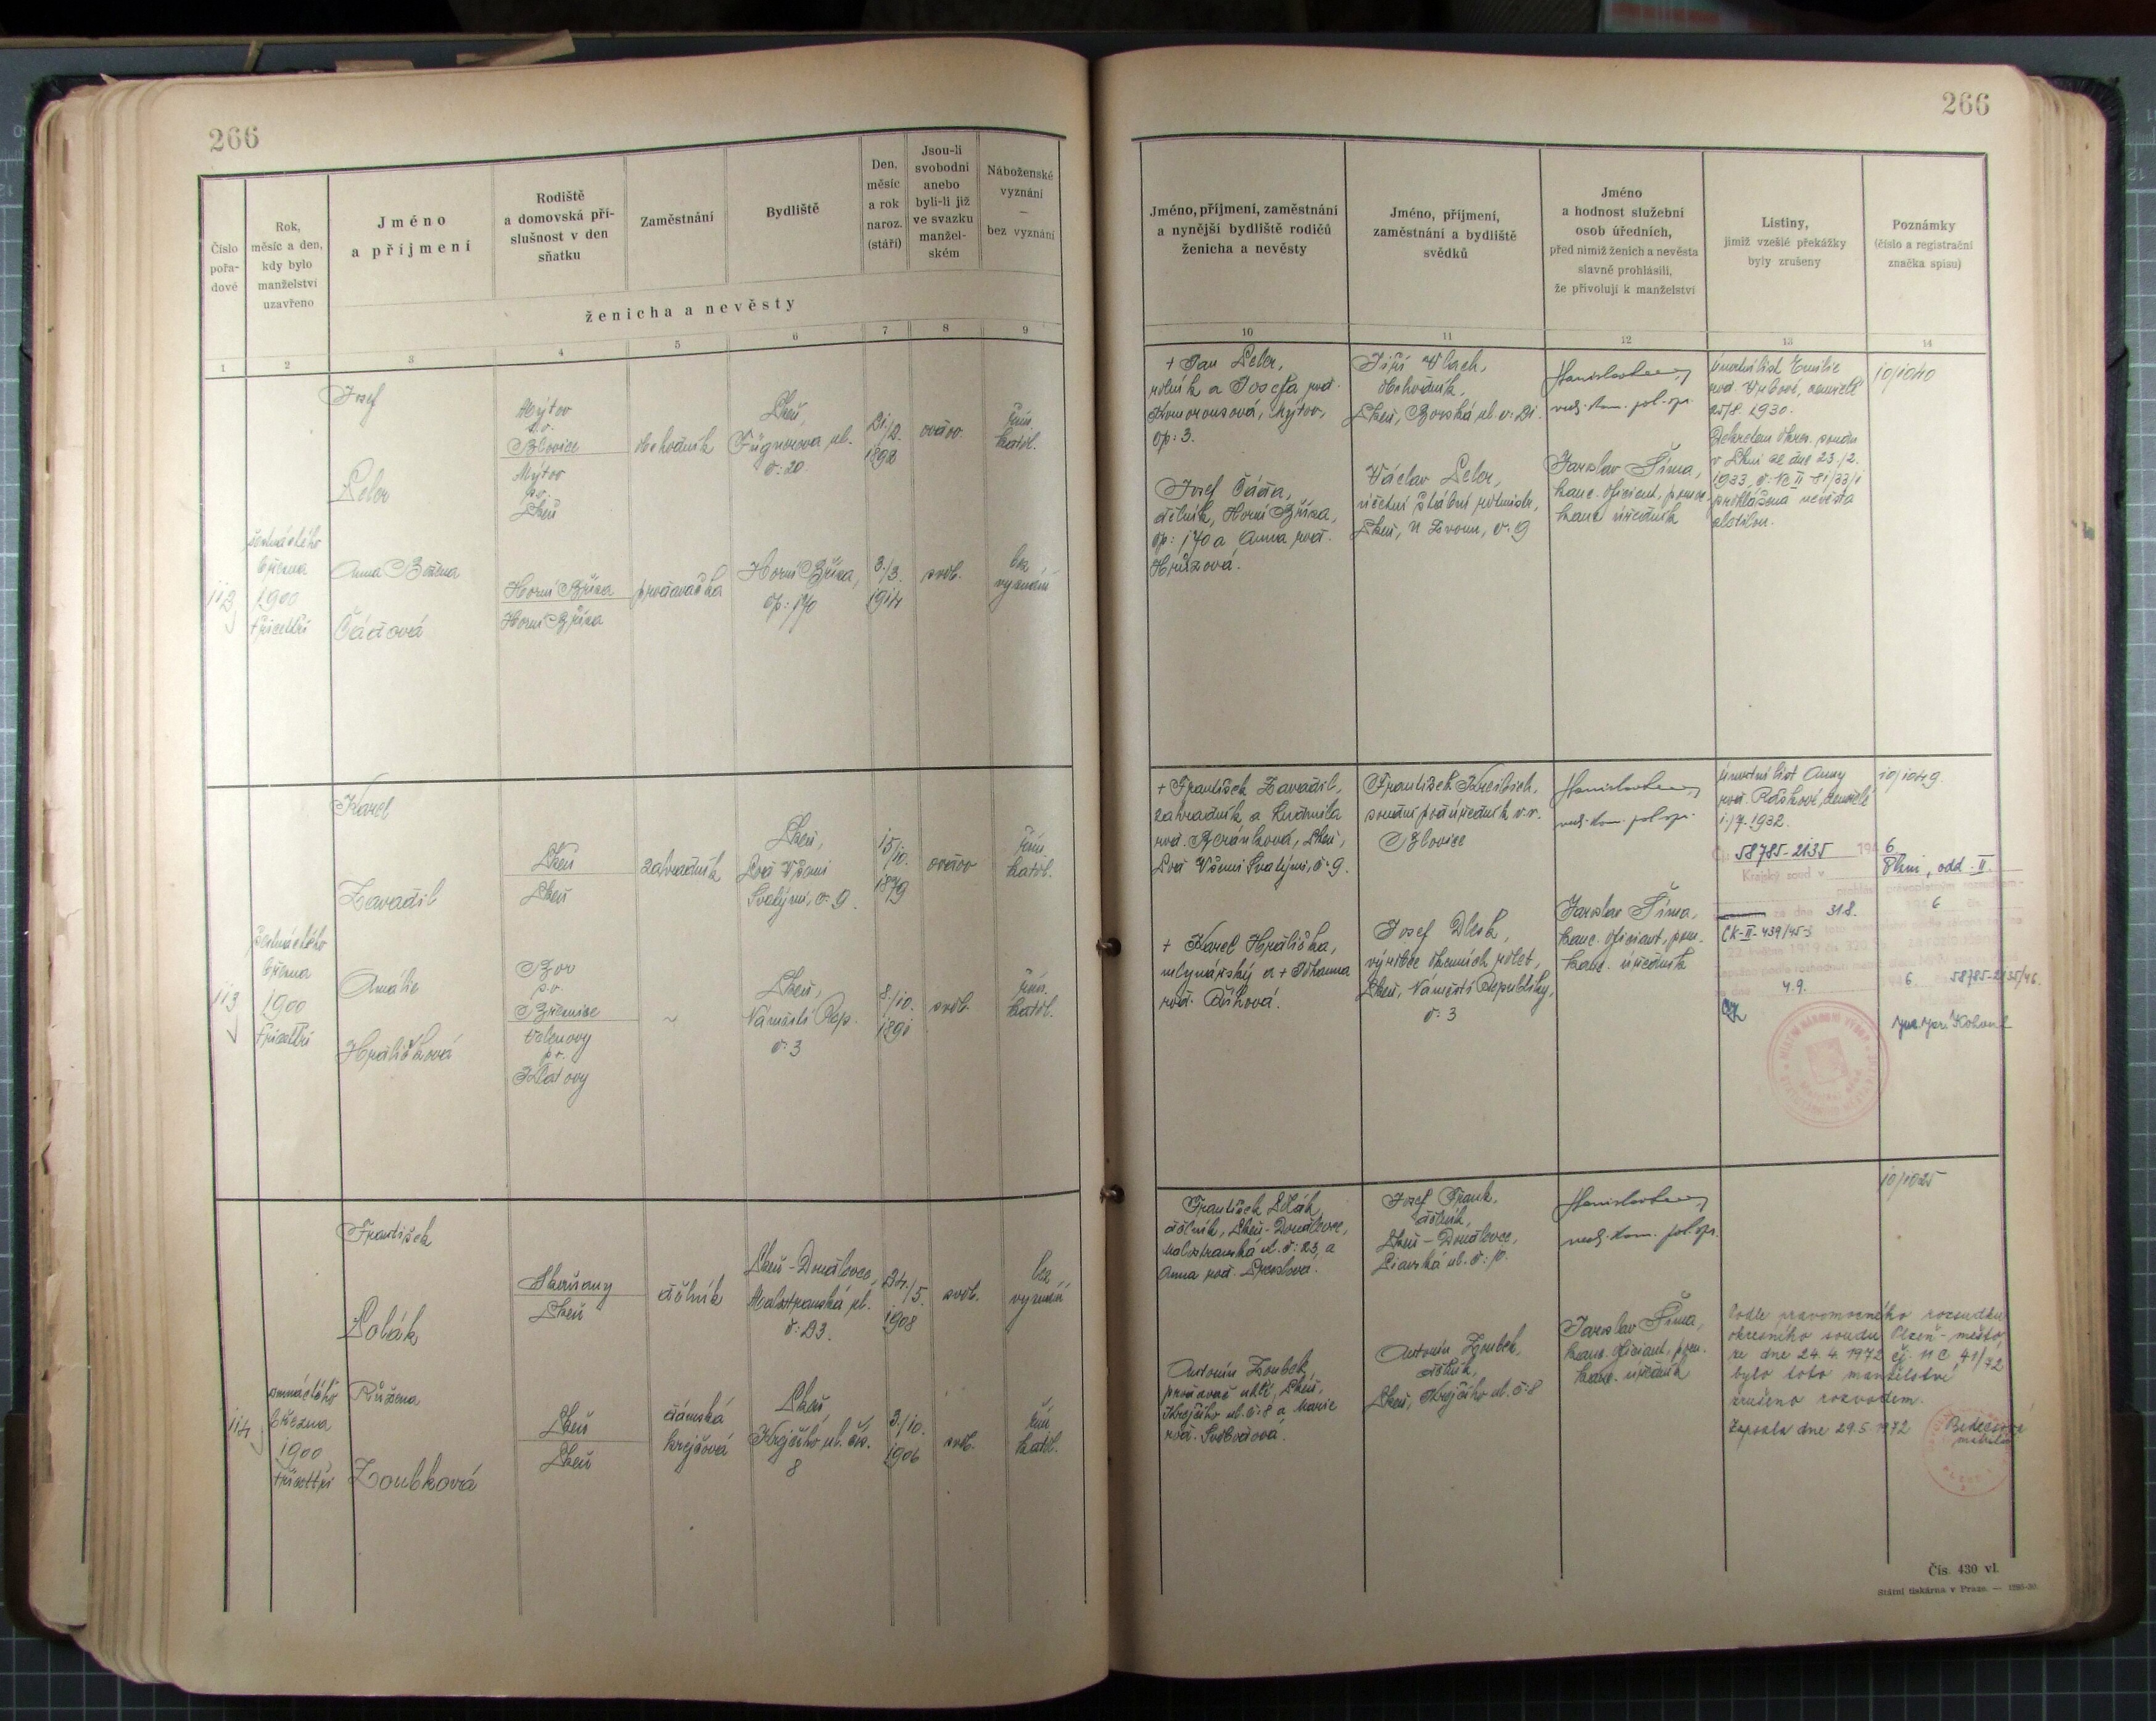 266
266
Číslo pořadové
Rok, měsíc a den, kdy bylo manželství uzavřeno
Jméno a příjmení
Rodiště a domovská příslušnost v den sňatku
Zaměstnání
Bydliště
Den, měsíc a rok naroz. (stáří)
Jsou-li svobodni anebo byli-li již ve svazku manželském
Náboženské vyznání — bez vyznání
ženicha a nevěsty
Jméno, příjmení, zaměstnání a nynější bydliště rodičů ženicha a nevěsty
Jméno, příjmení, zaměstnání a bydliště svědků
Jméno a hodnost služební osob úředních, před nimiž ženich a nevěsta slavně prohlásili, že přivolují k manželství
Listiny, jimiž vzešlé překážky byly zrušeny
Poznámky (číslo a registrační značka spisu)
1 2 3 4 5 6 7 8 9
10 11 12 13 14
Josef
Mýtov
p.o.
Blovice
Mýtov
p.o.
Plzeň
obchodník
Plzeň,
Fügnerova ul.
č: 20.
1892
ovdov
řím.
katol.
112
šestnáctého
března
1900
třicettři
Anna Božena
Čádová
Horní Bříza
Horní Bříza
prodavačka
Horní Bříza,
čp: 170
3./3.
1914
svob.
bez
vyznání
rolník a Josefa roz.
Komorousová, Mýtov,
čp: 3.
Josef Čáda,
dělník, Horní Bříza,
čp: 170 a Anna roz.
Hrůzová.
Jiří Vlach,
obchodník,
Plzeň, Borská ul. č: 21.
Václav
účetní štábní rotmistr,
Plzeň, U Zvonu, č. 9
Jaroslav Šíma,
kanc. oficiant, pom.
kanc. úředník
Úmrtní list Emilie
roz. Vrbové, zemřelé
25/8. 1930.
Dekretem okres. soudu
v Plzni ze dne 23./2.
1933, č: Nc II 81/33/1
prohlášena nevěsta
zletilou.
10/1040
Karel
Zavadil
Plzeň
Plzeň
zahradník
Plzeň,
Pod Všemi
Svatými, č. 9.
15/10.
1879
ovdov
řím.
katol.
113
šestnáctého
března
1900
třicettři
Amálie
Hrdličková
Bor
p.o.
Březnice
p.o.
Klatovy
Plzeň,
Náměstí Rep.
č: 3
8./10.
1891
svob.
řím.
katol.
+ František Zavadil,
zahradník a Ludmila
roz. Beránková, Plzeň,
Pod Všemi Svatými, č. 9.
+ Karel Hrdlička,
mlynářský a + Johanna
František
soudní podúředník v.v.
Blovice
Josef
výrobce okenních rolet,
Plzeň, Náměstí Republiky,
č. 3
Jaroslav Šíma,
kanc. oficiant, pom.
kanc. úředník
Úmrtní list Anny
zemřelé
1./7. 1932.
10/1049.
58785-2135 194 6
Krajský soud v Plzni, odd. II.
ze dne 31 8. 6
CK-II-439/45-3
4.9. 6 58785-2135/46.
František
Polák
Plzeň
dělník
Plzeň - Doudlevce,
Malostranská ul.
č: 23.
24./5.
1908
svob.
bez
vyznání
114
osmnáctého
března
1900
třicettři
Růžena
Zoubková
Plzeň
Plzeň
dámská
krejčová
Plzeň,
Krejčího ul. čís.
8
3./10.
1906
svob.
řím.
katol.
František Polák,
dělník, Plzeň - Doudlevce,
Malostranská ul. č: 23, a
Anna roz.
Antonín Zoubek,
prodavač uhlí, Plzeň,
Krejčího ul. č: 8 a Marie
roz. Svobodová.
Josef Frank,
dělník,
Plzeň - Doudlevce,
Antonín Zoubek,
dělník,
Plzeň, Krejčího ul. č: 8
Jaroslav Šíma,
kanc. oficiant, pom.
kanc. úředník
10/1025
Podle pravomocného rozsudku
okresního soudu Plzeň - město
ze dne 24. 4. 1972 čj. 11 C 41/72
bylo toto manželství
zrušeno rozvodem.
Zapsala dne 29. 5. 1972
Čís. 430 vl.
Státní tiskárna v Praze. —